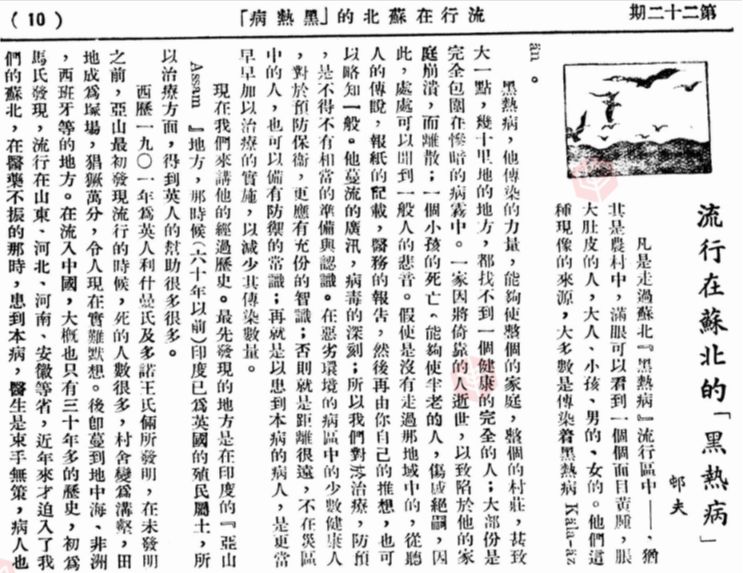 第二十二期
流行在蘇北的「黑熱病」
(10)
流行在蘇北的「黑熱病」
邨夫
凡是走過蘇北『黑熱病』流行區中——,猶
其是農村中,滿眼可以看到一個個面目黃腫,脹
大肚皮的人,大人、小孩、男的、女的。他們這
種現像的來源,大多數是傳染着黑熱病 Kāla-āz
ān 。
黑熱病,他傳染的力量,能夠使整個的家庭,整個的村莊,甚致
大一點,幾十里地的地方,都找不到一個健康的完全的人;大部份是
完全包圍在慘暗的病霧中。一家因將倚靠的人逝世,以致陷於他的家
庭崩潰,而離散;一個小孩的死亡、能夠使半老的人,傷感絕嗣,因
此,處處可以聞到一般人的悲音。假使是沒有走過那地域中的,從聽
人的傳說,報紙的記載,醫務的報告,然後再由你自己的推想,也可
以略知一般。他蔓流的廣汎,病毒的深刻;所以我們對於治療,防預
,是不得不有相當的準備與認識。在惡劣環境的病區中的少數健康人
,對於預防保衛,更應有充份的智識;否則就是距離很遠,不在災區
中的人,也可以備有防禦的常識;再就是以患到本病的病人,是更當
早早加以治療的實施,以減少其傳染數量。
現在我們來講他的經過歷史。最先發現的地方是在印度的『亞山
Assam 』地方,那時候(六十年以前)印度已爲英國的殖民屬土,所
以治療方面,得到英人的幫助很多很多。
西歷一九〇一年爲英人利什曼氏及多諾王氏倆所發明,在未發明
之前,亞山最初發現流行的時候,死的人數很多,村舍變爲溝壑,田
地成爲塚場,猖獗萬分,令人現在實難默想。後卽蔓到地中海、非洲
,西班牙等的地方。在流入中國,大概也只有三十年多的歷史,初爲
馬氏發現,流行在山東、河北、河南、安徽等省,近年來才迫入了我
們的蘇北,在醫藥不振的那時,患到本病,醫生是束手無策,病人也